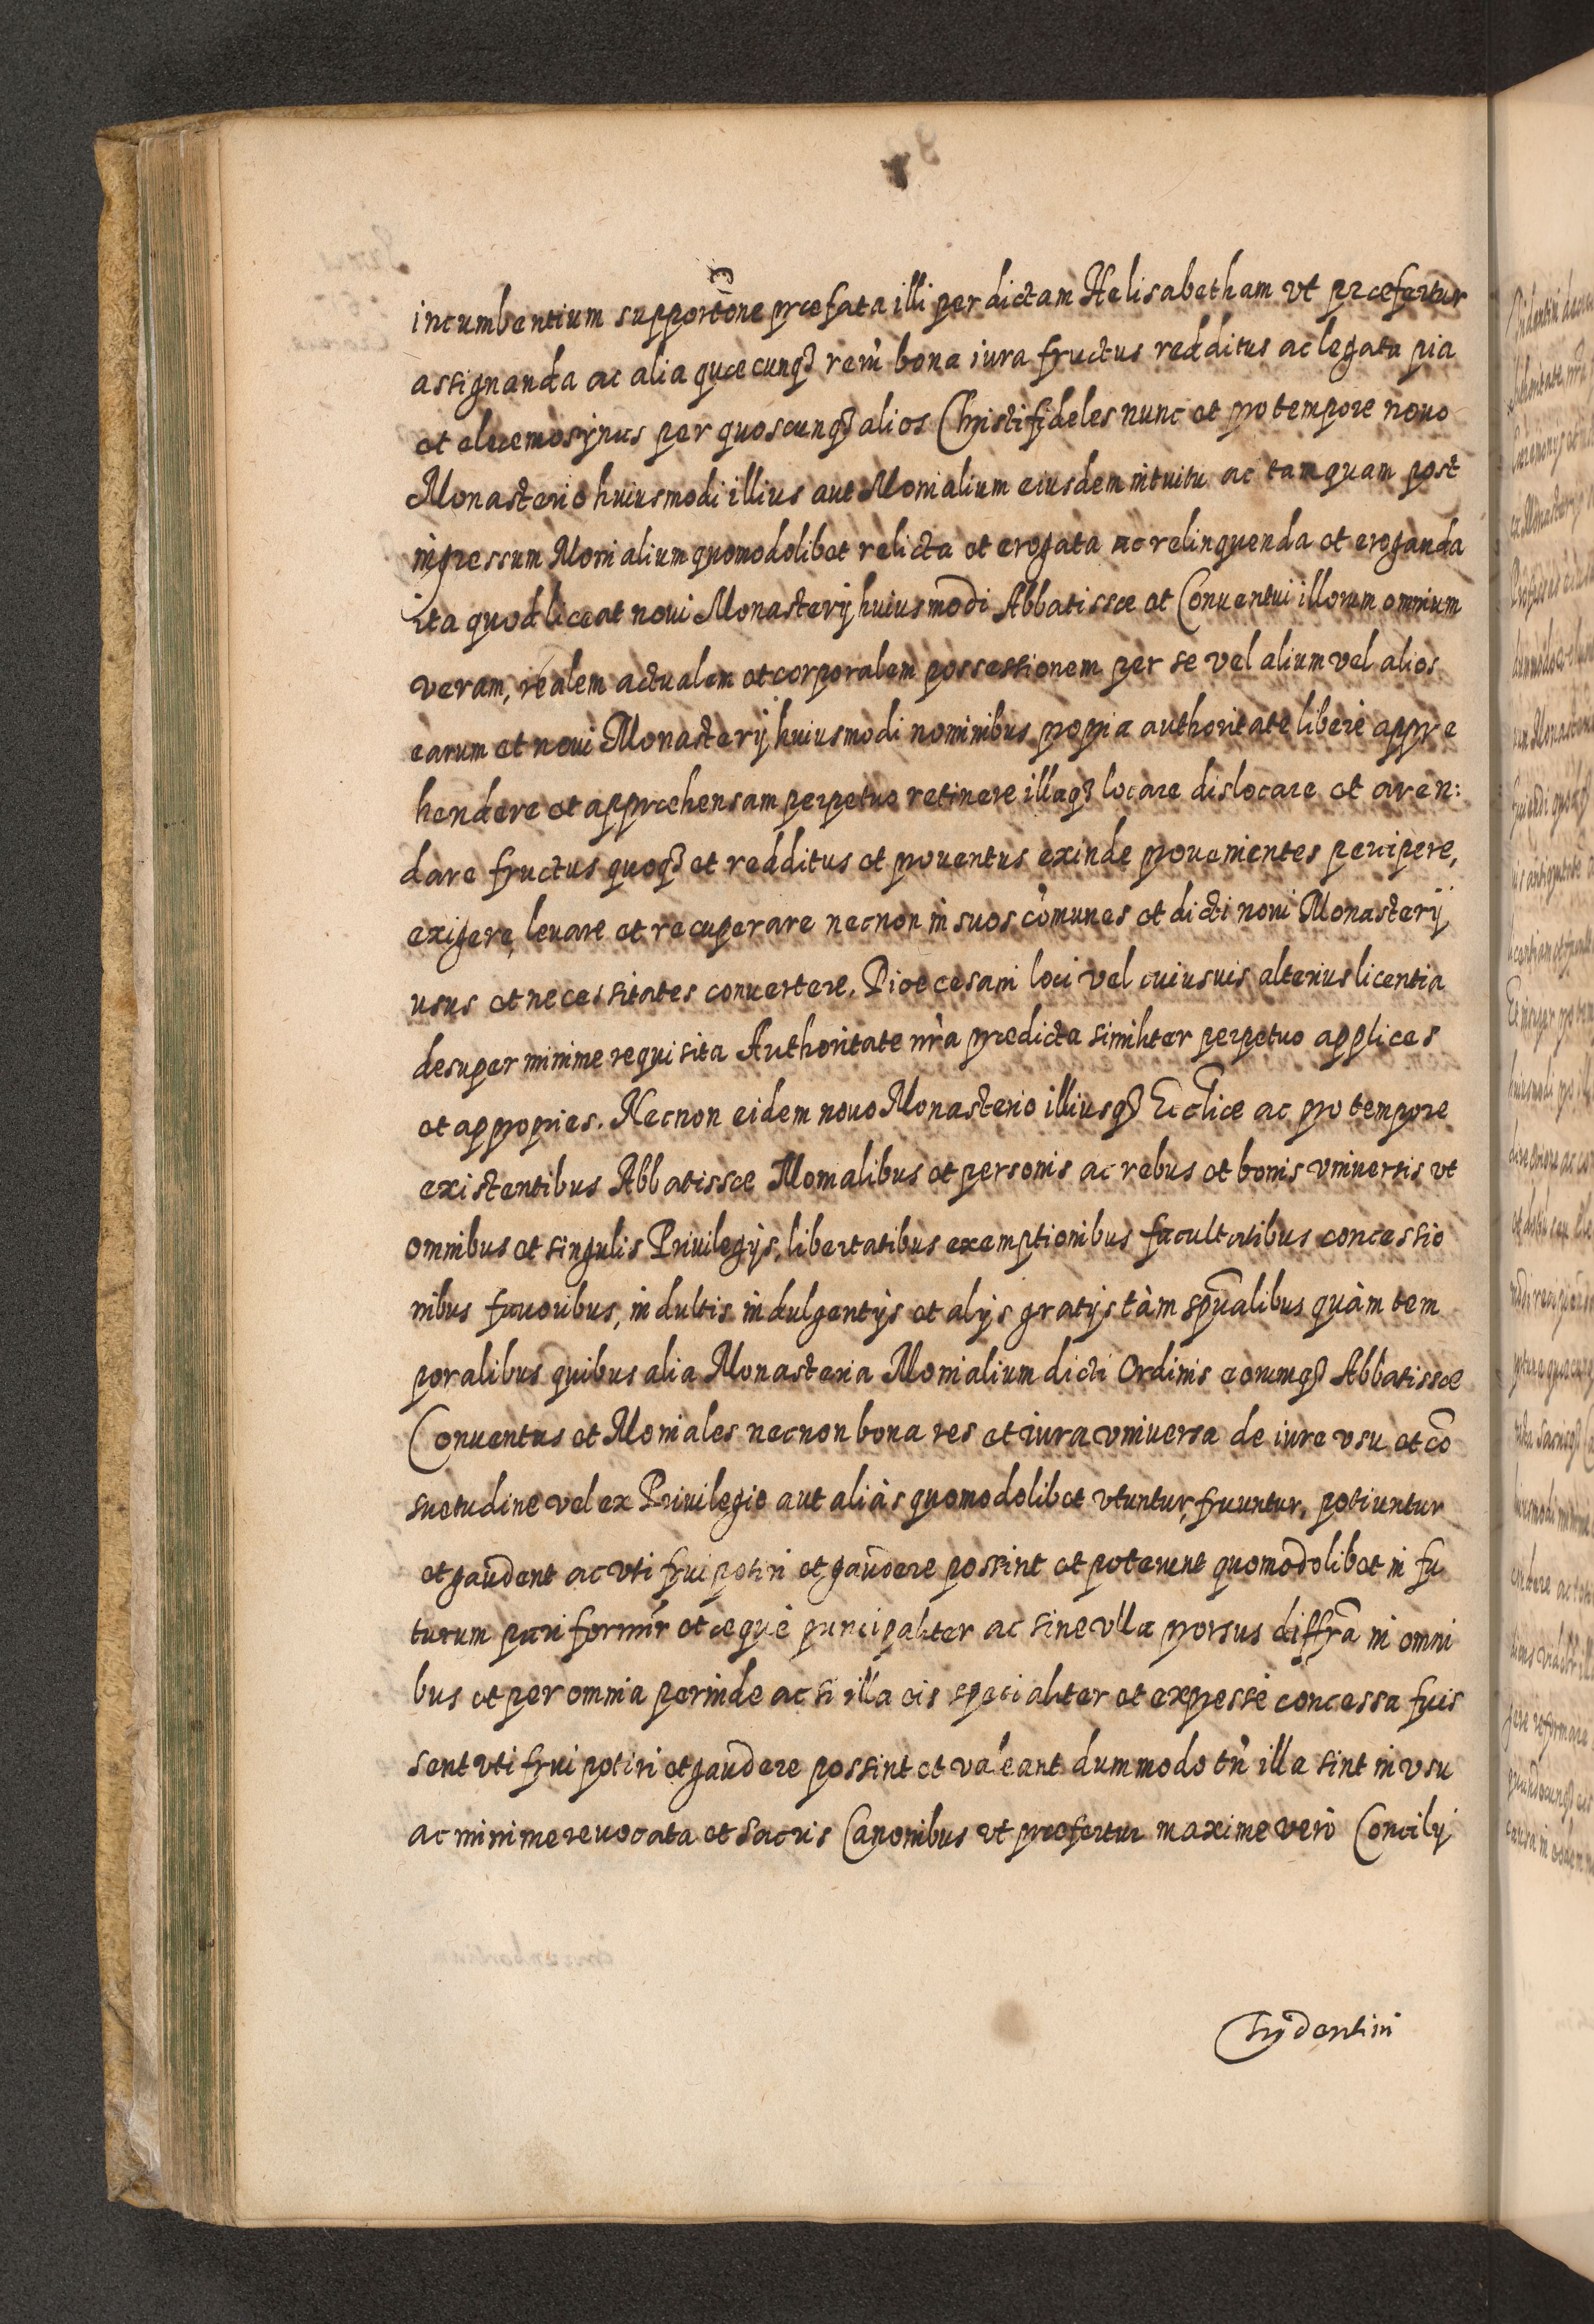 incumbentium supportõne præfata illi per dictam Helisabetham vt præfertur
assignanda ac alia quæcunqȝ rerũ bona iura fructus redditus ac legata pia
et eleemosynas per quoscunqȝ alios Christifideles nunc et pro tempore nouo
Monasterio huiusmodi illius aut Monialium eiusdem intuitu ac tamquam post
ingressum Monialium quomodolibet relicta et erogata ac relinquenda et eroganda
ita quod liceat noui Monasterij huiusmodi Abbatissæ et Conuentui illorum omnium
veram, realem actualem et corporalem possessionem per se vel alium vel alios
earum et noui Monasterij huiusmodi nominibus propria authoritate liberè appre
hendere et appræhensam perpetuo retinere illaqȝ locare dislocare et aren:
dare fructus quoqȝ et redditus et prouentus exinde prouenientes percipere,
exigere, leuare et recuperare necnon in suos cõmunes et dicti noui Monasterij
usus et necessitates conuertere. Dioecesani loci vel cuiusuis alterius licentia
desuper minime requisita Authoritate nr̃a prædicta similiter perpetuo applices
et appropries. Necnon eidem nouo Monasterio illiusqȝ Ecclĩæ ac pro tempore
existentibus Abbatissæ Monialibus et personis ac rebus et bonis vniuersis vt
omnibus et singulis Priuilegijs, libertatibus exemptionibus facultatibus concessio
nibus fauoribus, indultis indulgentijs et alijs gratijs tàm spũalibus quàm tem
poralibus quibus alia Monasteria Monialium dicti Ordinis eorumqȝ Abbatissæ
Conuentus et Moniales necnon bona res et iura vniuersa de iure vsu et cõ
suetudine vel ex Priuilegio aut aliàs quomodolibet vtuntur, fruuntur, potiuntur
et gaudent ac vti frui potiri et gaudere possint et poterunt quomodolibet in fu
turum pariformr̃ et æquè principaliter ac sine vlla prorsus diffr̃a in omni
bus et per omnia perinde ac si illa eis specialiter et expressè concessa fuis
sent vti frui potiri et gaudere possint et valeant dummodo tñ illa sint in vsu
ac minime reuocata et Sacris Canonibus vt præfertur maxime verò Concilij
Tridentini